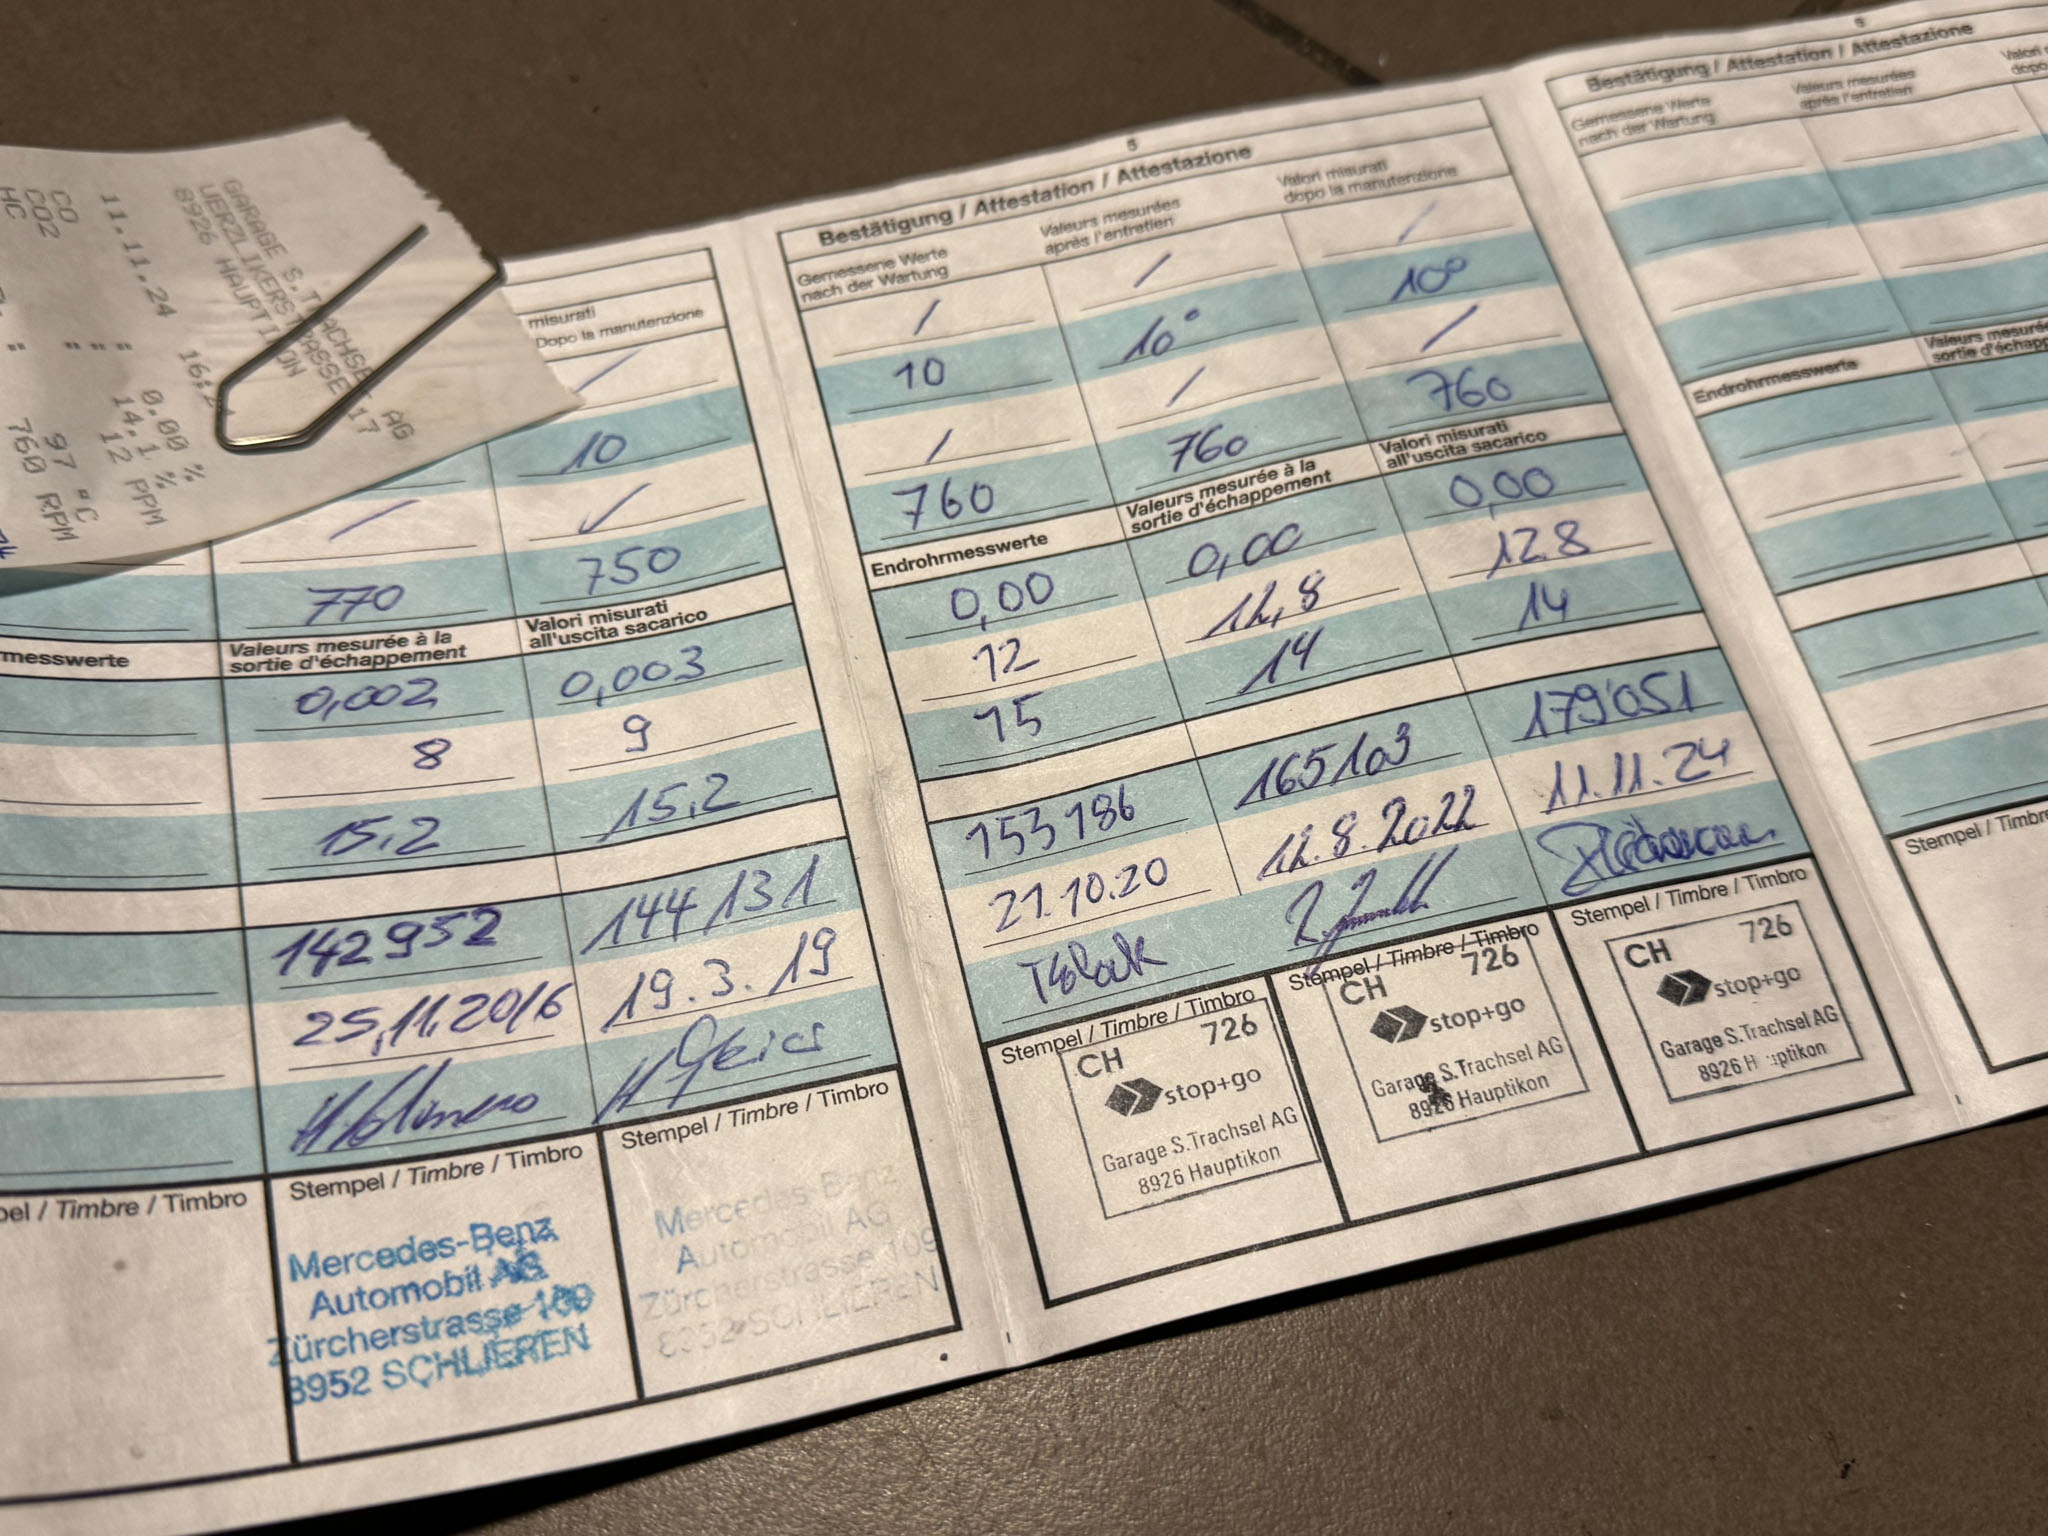 GARAGE S.TRACHSEL AG
UERZLIKERSTRASSE 17
8926 HAUPTIKON
11.11.24 16:2
CO 0.00 %
CO2 14.1 %
HC 12 PPM
97 °C
760 RPM
misurati
Dopo la manutenzione
/
10
/ ✓
770 750
messwerte
Valeurs mesurée à la
sortie d'échappement
Valori misurati
all'uscita sacarico
0,002 0,003
8 9
15.2 15,2
142952 144131
25,11,2016 19.3.19
pel / Timbre / Timbro
Stempel / Timbre / Timbro
Stempel / Timbre / Timbro
Mercedes-Benz
Automobil AG
Zürcherstrasse 109
8952 SCHLIEREN
Mercedes-Benz
Automobil AG
Zürcherstrasse 109
8952 SCHLIEREN
5
Bestätigung / Attestation / Attestazione
Gemessene Werte
nach der Wartung
Valeurs mesurées
après l'entretien
Valori misurati
dopo la manutenzione
/ / /
10 10° 10°
/ / /
760 760 760
Endrohrmesswerte
Valeurs mesurée à la
sortie d'échappement
Valori misurati
all'uscita sacarico
0,00 0,00 0,00
12 12,8 12.8
15 14 14
153186 165103 179'051
21.10.20 12.8.2022 11.11.24
Stempel / Timbre / Timbro
Stempel / Timbre / Timbro
Stempel / Timbre / Timbro
CH 726
stop+go
Garage S.Trachsel AG
8926 Hauptikon
CH 726
stop+go
Garage S.Trachsel AG
8926 Hauptikon
CH 726
stop+go
Garage S.Trachsel AG
8926 Hauptikon
6
Bestätigung / Attestation / Attestazione
Gemessene Werte
nach der Wartung
Valeurs mesurées
après l'entretien
Valori
dopo
Endrohrmesswerte
Valeurs mesurée
sortie d'échapp
Stempel / Timbre